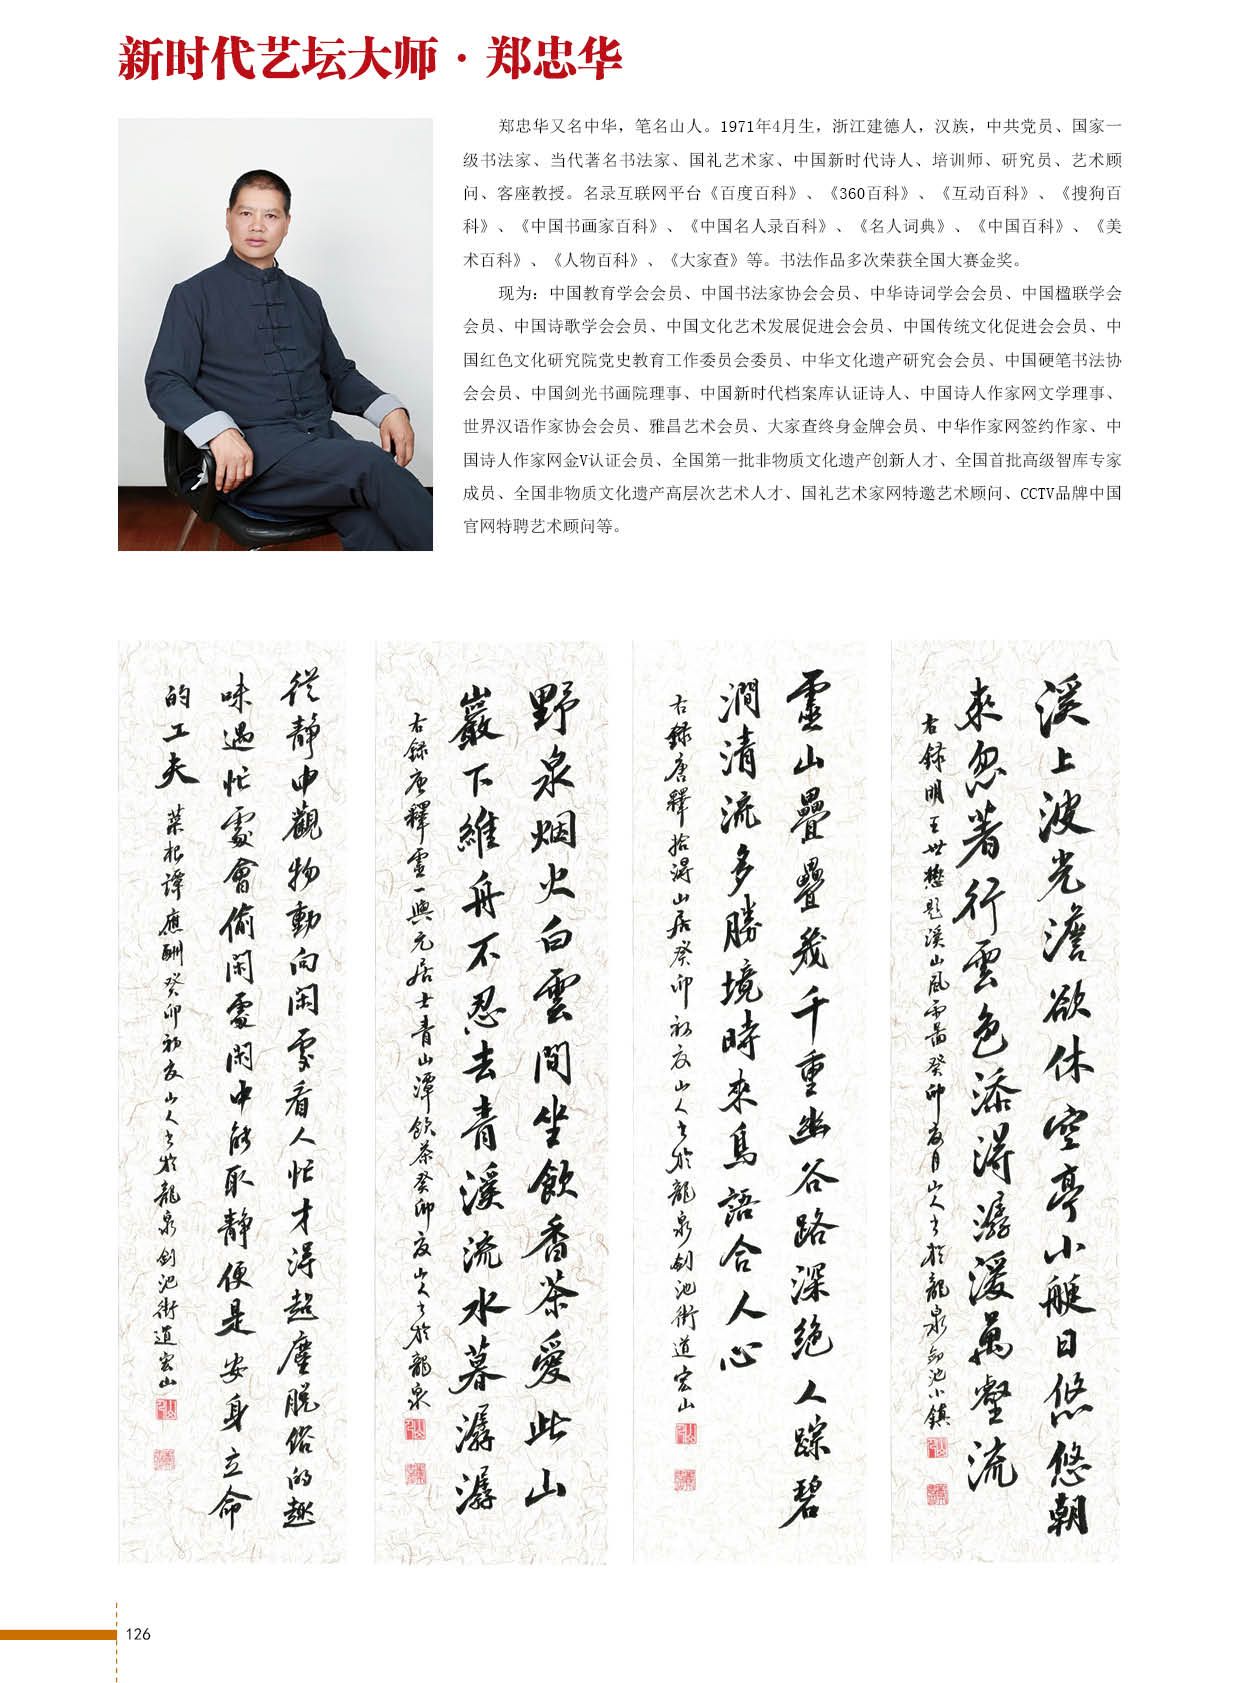 新时代艺坛大师·郑忠华
郑忠华又名中华，笔名山人。1971年4月生，浙江建德人，汉族，中共党员、国家一
级书法家、当代著名书法家、国礼艺术家、中国新时代诗人、培训师、研究员、艺术顾
问、客座教授。名录互联网平台《百度百科》、《360百科》、《互动百科》、《搜狗百
科》、《中国书画家百科》、《中国名人录百科》、《名人词典》、《中国百科》、《美
术百科》、《人物百科》、《大家查》等。书法作品多次荣获全国大赛金奖。
现为：中国教育学会会员、中国书法家协会会员、中华诗词学会会员、中国楹联学会
会员、中国诗歌学会会员、中国文化艺术发展促进会会员、中国传统文化促进会会员、中
国红色文化研究院党史教育工作委员会委员、中华文化遗产研究会会员、中国硬笔书法协
会会员、中国剑光书画院理事、中国新时代档案库认证诗人、中国诗人作家网文学理事、
世界汉语作家协会会员、雅昌艺术会员、大家查终身金牌会员、中华作家网签约作家、中
国诗人作家网金V认证会员、全国第一批非物质文化遗产创新人才、全国首批高级智库专家
成员、全国非物质文化遗产高层次艺术人才、国礼艺术家网特邀艺术顾问、CCTV品牌中国
官网特聘艺术顾问等。
溪上波光澹欲休空亭小艇日悠悠朝
来忽著行雲色添得潺湲萬壑流
右録明王世懋題溪山風雨圖癸卯夏月山人书於龍泉劍池小鎮
靈山疊疊幾千重幽谷路深絶人踪碧
澗清流多勝境時來鳥語合人心
右録唐釋拾得山居癸卯初夏山人书於龍泉劍池街道宏山
野泉烟火白雲間坐飲香茶愛此山
巖下維舟不忍去青溪流水暮潺潺
右録唐釋靈一與元居士青山潭飲茶癸卯夏山人书於龍泉
從静中觀物動向閑處看人忙才得超塵脱俗的趣
味遇忙處會偷閑處閑中能取静便是安身立命
的工夫 菜根譚應酬癸卯初夏山人书於龍泉劍池街道宏山
126